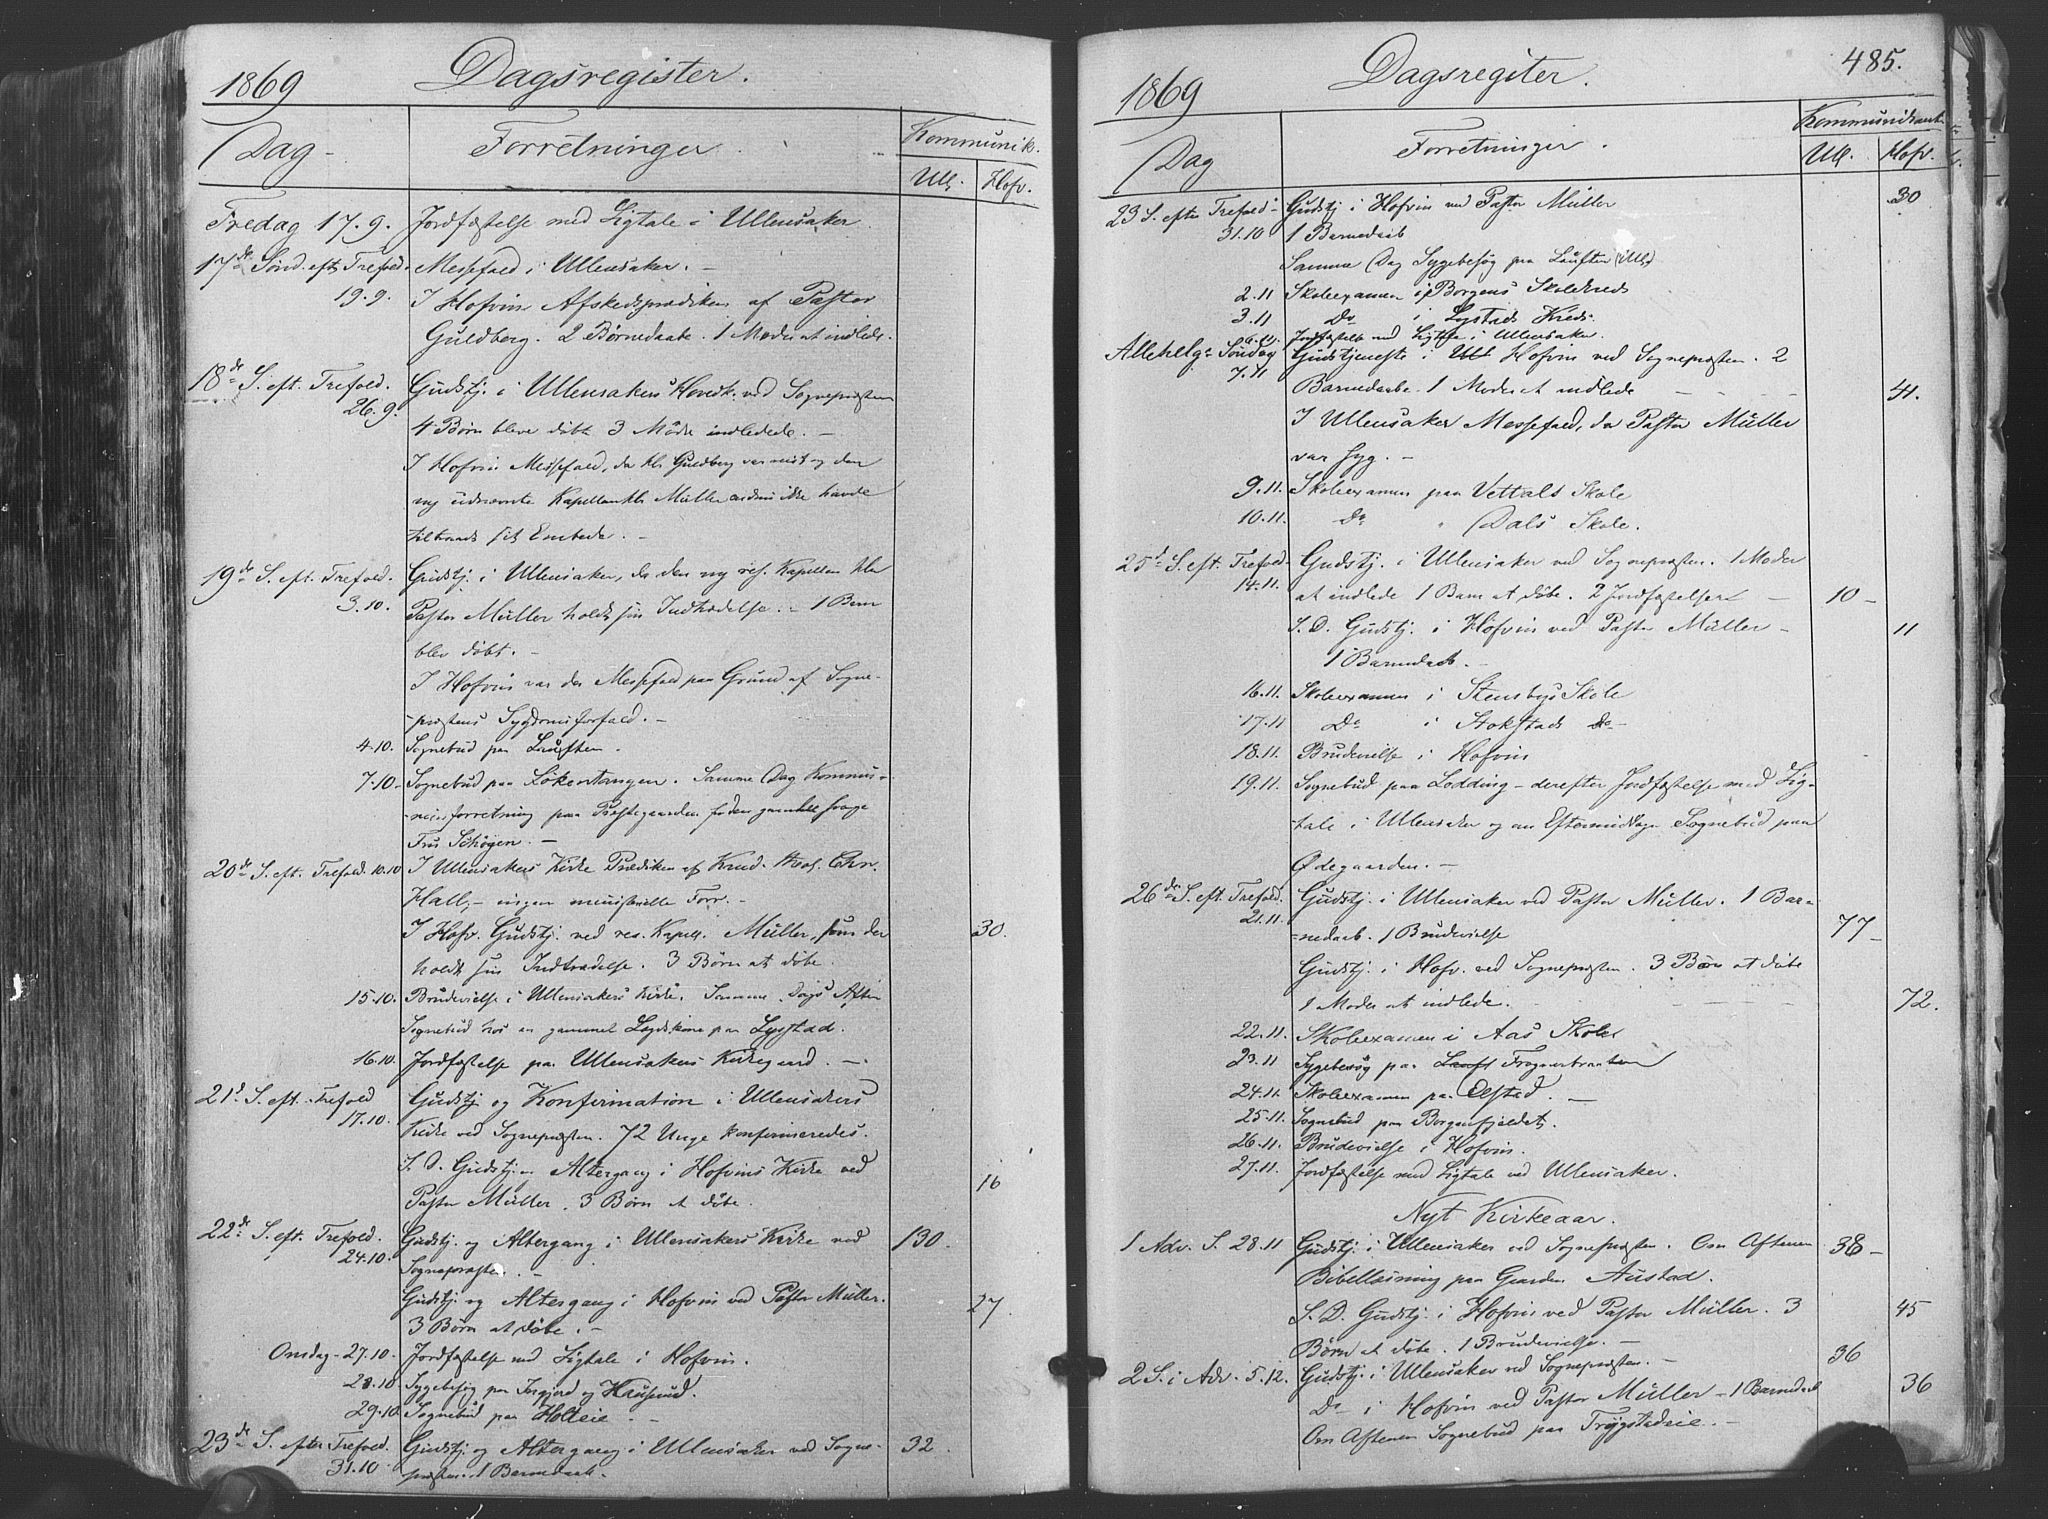 1869 Dagsregister.
Dag - Forretninger. Kommunik.
Ull. Hofv.
Fredag 17.9. Jordfæstelse med Ligtale i Ullensaker
17de Sønd. eft. Trefold. Messefald i Ullensaker. -
19.9. I Hofvin Afskedsprædiken af Pastor
Guldberg. 2 Børnedaabe. 1 Moder at indlede.
18de S. eft. Trefold. Gudstj. i Ullensakers Hovedk. ved Sognepræsten
26.9. 4 Børn bleve døbt 3 Mødre indledede. -
I Hofvin Messefald, da Hr. Guldberg var reist og den
ny udnævnte Kapellan Hr. Müller endnu ikke havde
tiltraadt sit Embede. -
19de S. eft. Trefold. Gudstj. i Ullensaker, da den ny res. Kapellan Hr.
3.10. Pastor Müller holdt sin Indtrædelse. - 1 Barn
blev døbt. -
I Hofvin var der Messefald paa Grund af Sogne-
-præstens Sygdomsforfald. -
4.10. Sognebud paa Kløften.
7.10. Sognebud paa Løkentangen. Samme Dag Kommu-
-nionforretning paa Præstegaarden for den gamle svage
Frø Schøgen. -
20de S. eft. Trefold. 10.10 I Ullensakers Kirke Prædiken af Kand. theol. Chr.
Hall, - ingen ministerielle Forr. -
I Hofv. Gudstj. ved res. Kapell. Müller, som der 30.
holdt sin Indtrædelse. 3 Børn at døbe.
15.10. Brudevielse i Ullensakers Kirke. Samme Dags Aften
Sognebud hos en gammel Lægdskone paa Lystad.
16.10. Jordfæstelse paa Ullensakers Kirkegaard. -
21d S. eft. Trefold Gudstj. og Konfirmation i Ullensakers
17.10. Kirke ved Sognepræsten. 72 Unge konfirmeredes.
S. D. Gudstj. og Altergang i Hofvins Kirke ved 16
Pastor Müller. 3 Børn at døbe.
22de S. eft. Trefold. Gudstj. og Altergang i Ullensakers Kirke ved 130.
24.10. Sognepræsten. -
Gudstj. og Altergang i Hofvin ved Pastor Müller. 27.
3 Børn at døbe. -
Onsdag - 27.10. Jordfæstelse med Ligtale i Hofvin.
28.10 Sygebesøg paa og
29.10. Sognebud paa Holteie. -
23de S. efter Trefold. Gudstj og Altergang i Ullensaker ved Sogne- 32.
31.10 præsten. 1 Barnedaab.
485.
1869 Dagsregiter.
Kommunikant
Dag Forretninger. Ull. Hofv.
23 S. efter Trefold. Gudstj. i Hofvin ved Pastor Müller 30
31.10 1 Barnedaab
Samme Dag Sygebesøg paa Kløften (Ull.)
2.11 Skoleexamen i Borgens Skolekreds
3.11 Do i Lystads Kreds.
6.11. Jordfæstelse med Ligtale i Ullensaker.
Allehelgs Søndag Gudstjeneste i Ull Hofvin ved Sognepræsten. 2
7.11 Barnedaabe. 1 Moder at indlede - - - 41.
I Ullensaker Messefald, da Pastor Müller
var syg. -
9.11. Skoleexamen paa Vettals Skole
10.11. Do " Dals Skole.
25d S. eft. Trefold. Gudstj. i Ullensaker ved Sognepræsten. 1 Moder
14.11. at indlede 1 Barn at døbe. 2 Jordfæstelser - 10 -
S. D. Gudstj. i Hofvin ved Pastor Müller - 11
1 Barnedaab. -
16.11. Skoleexamen i Stensbys Skole
17.11 Do i Stokstads Do
18.11. Brudevielse i Hofvin
19.11. Sognebud paa Lodding - derefter Jordfæstelse med Lig-
tale i Ullensaker og om Eftermiddagen Sognebud paa
Ødegaarden. -
26de S. eft. Trefold. Gudstj. i Ullensaker ved Pastor Müller. 1 Bar-
21.11. -nedaab. 1 Brudevielse 77 -
Gudstj. i Hofv. ved Sognepræsten. 3 Børn at døbe
1 Moder at indlede. 72.
22.11. Skoleexamen i Aas Skole
23.11 Sygebesøg paa
24.11. Skoleexamen paa Olstad. -
25.11. Sognebud paa Borgenfjeldet.
26.11. Brudevielse i Hofvin.
27.11. Jordfæstelse med Ligtale ved Ullensaker.
Nyt Kirkeaar.
1 Adv. S. 28.11 Gudstj. i Ullensaker ved Sognepræsten. Om Aftenen 38 -
Bibellæsning paa Gaarden Austad.
S. D. Gudstj. i Hofvin ved Pastor Müller. 3 45
Børn at døbe. 1 Brudevielse. -
2 S. i Adv. 5.12. Gudstj. i Ullensaker ved Sognepræsten. - 36
Do i Hofvin ved Pastor Müller - 1 Barnedaab 36
Om Aftenen Sognebud paa Trøgstadeie. -